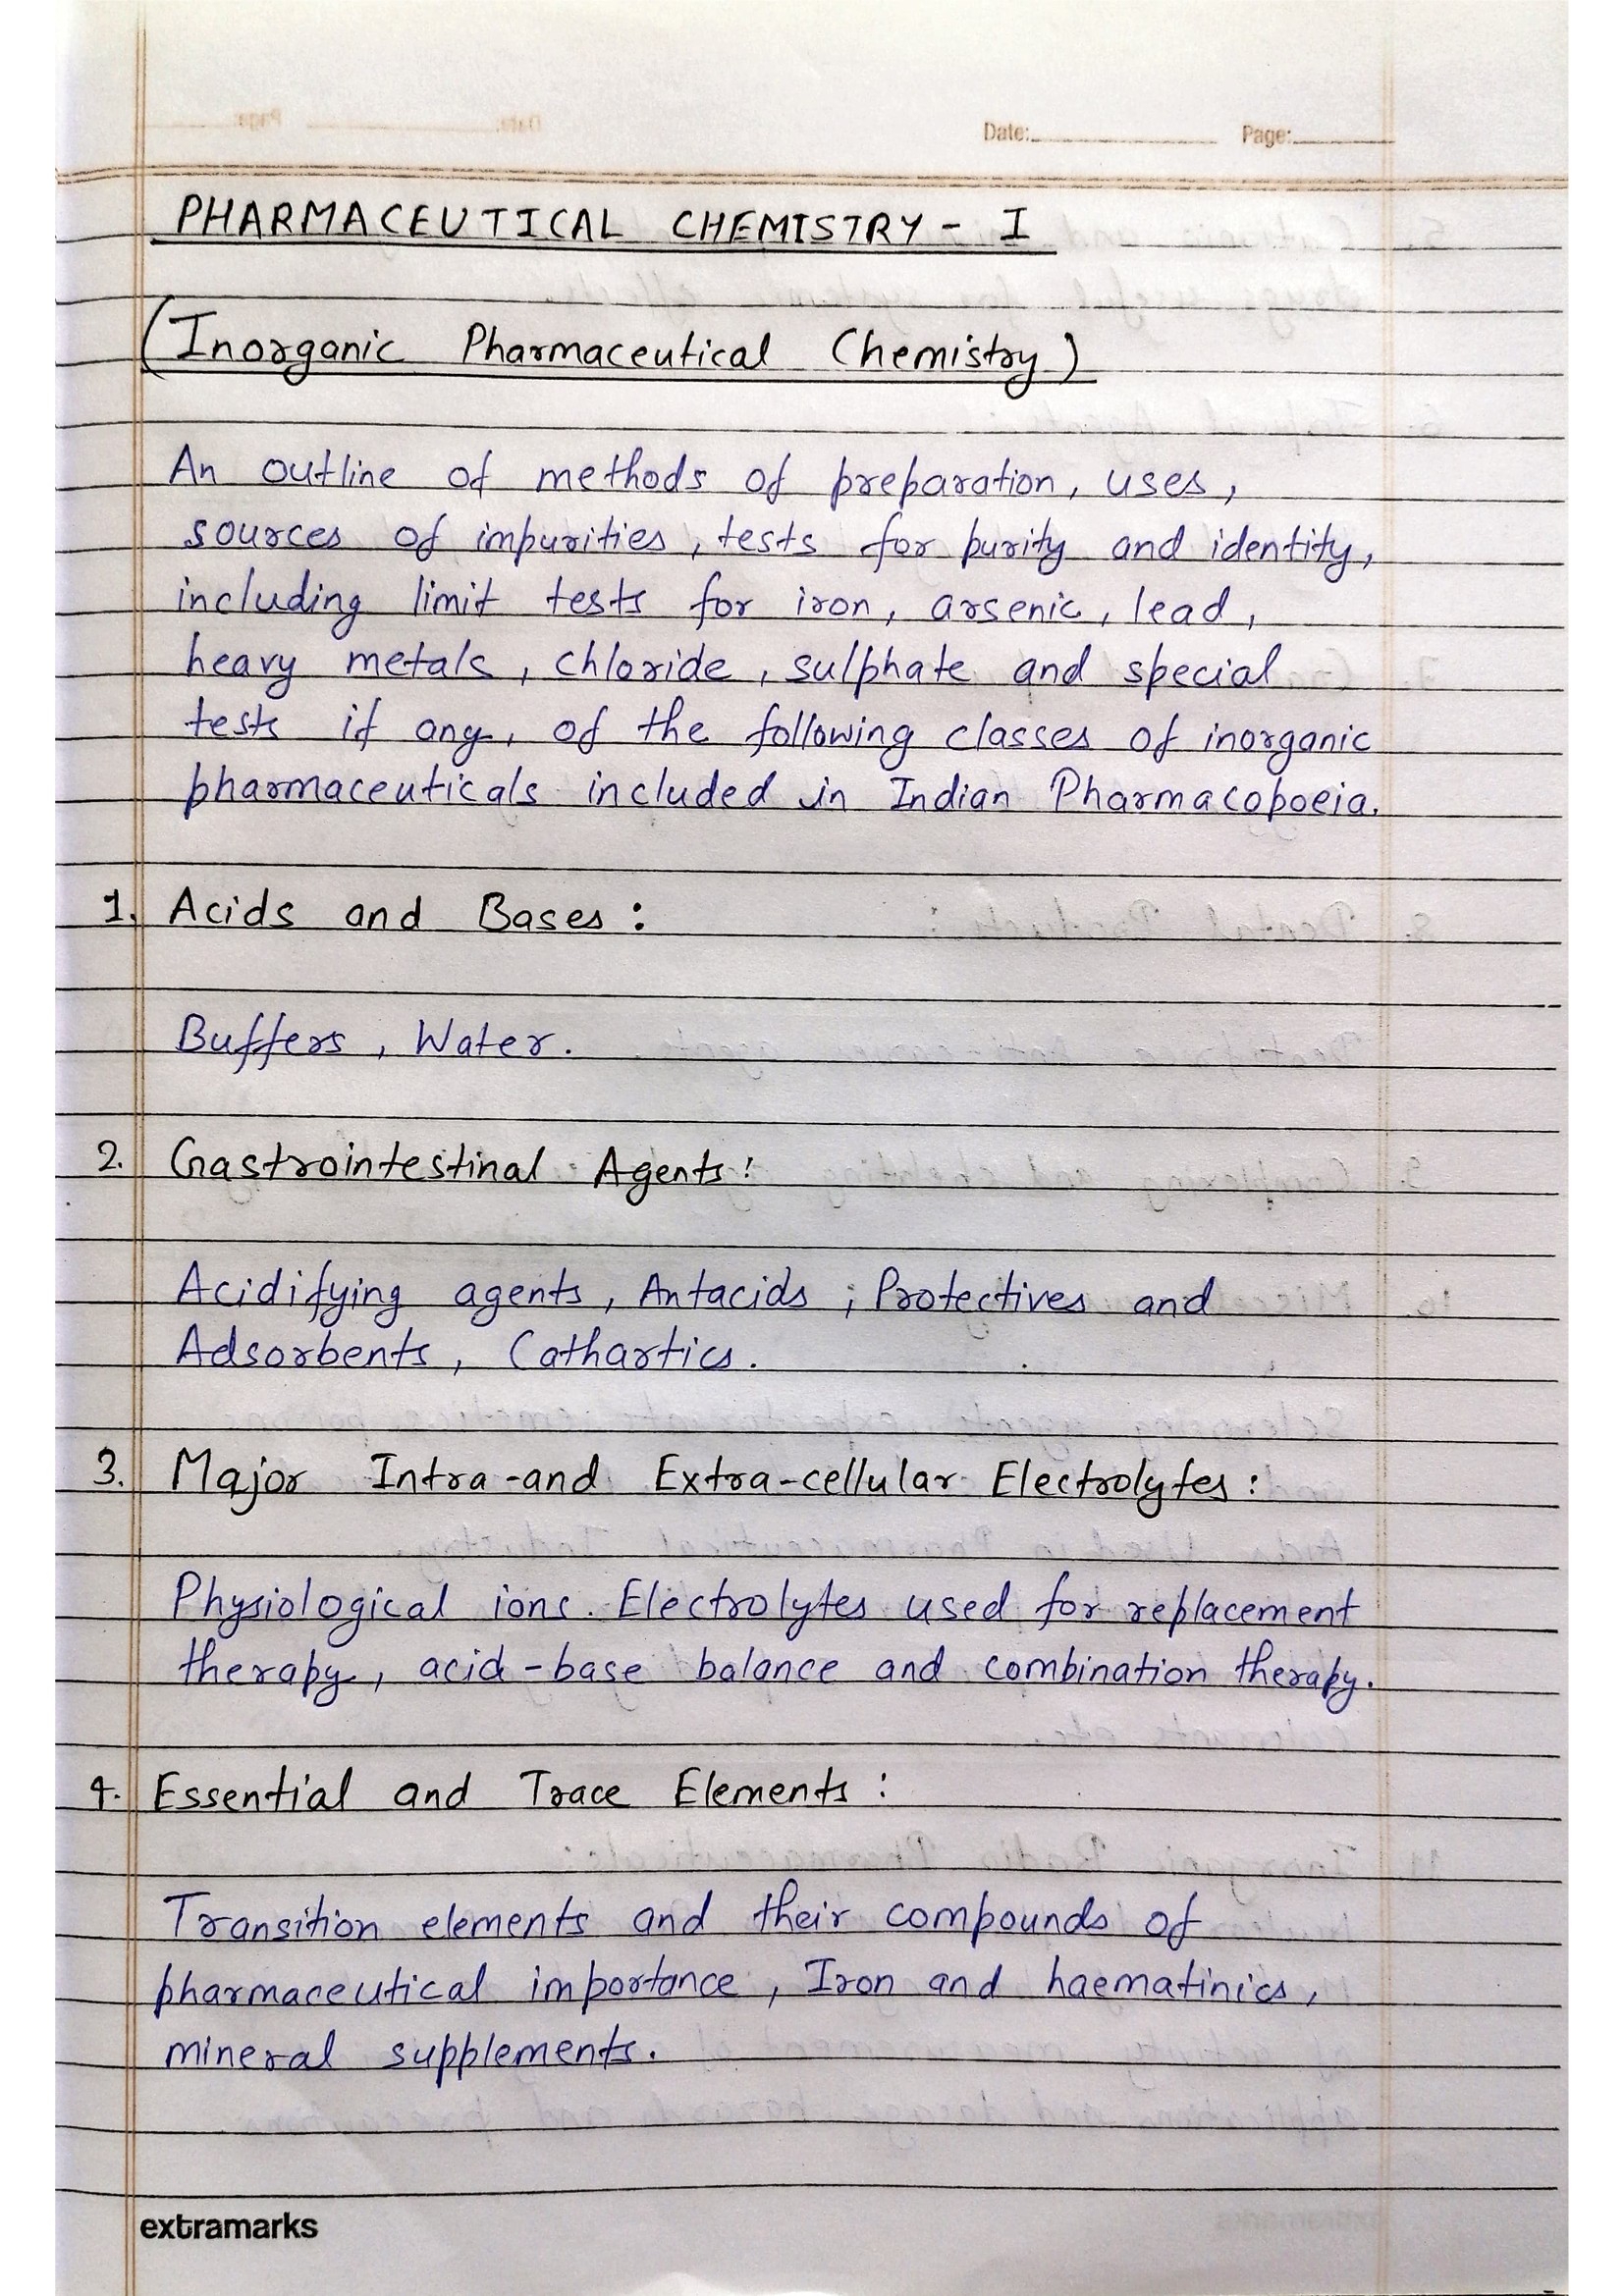 Date: Page:
PHARMACEUTICAL CHEMISTRY - I
(Inorganic Pharmaceutical Chemistry)
An outline of methods of preparation, uses,
sources of impurities, tests for purity and identity,
including limit tests for iron, arsenic, lead,
heavy metals, chloride, sulphate and special
tests if any, of the following classes of inorganic
pharmaceuticals included in Indian Pharmacopoeia.
1. Acids and Bases :
Buffers, Water.
2. Gastrointestinal Agents :
Acidifying agents, Antacids ; Protectives and
Adsorbents, Cathartics.
3. Major Intra-and Extra-cellular Electrolytes :
Physiological ions. Electrolytes used for replacement
therapy, acid-base balance and combination therapy.
4. Essential and Trace Elements :
Transition elements and their compounds of
pharmaceutical importance, Iron and haematinics,
mineral supplements.
extramarks